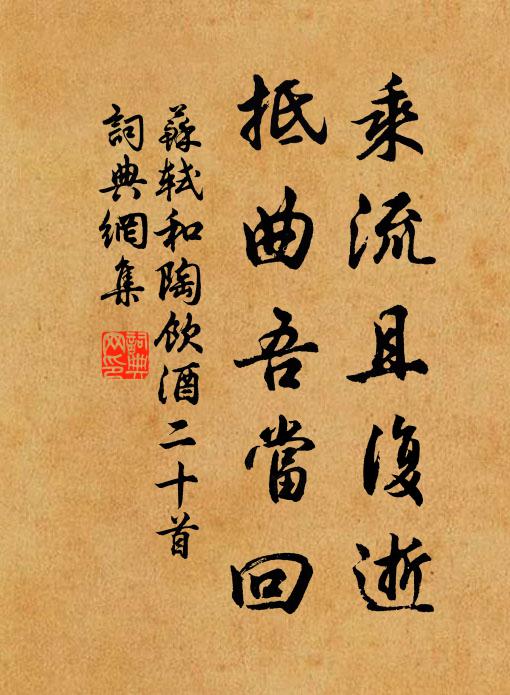 乘流且復逝
抵曲吾當回
蘇軾和陶飲酒二十首
詞典網集
詞典網印